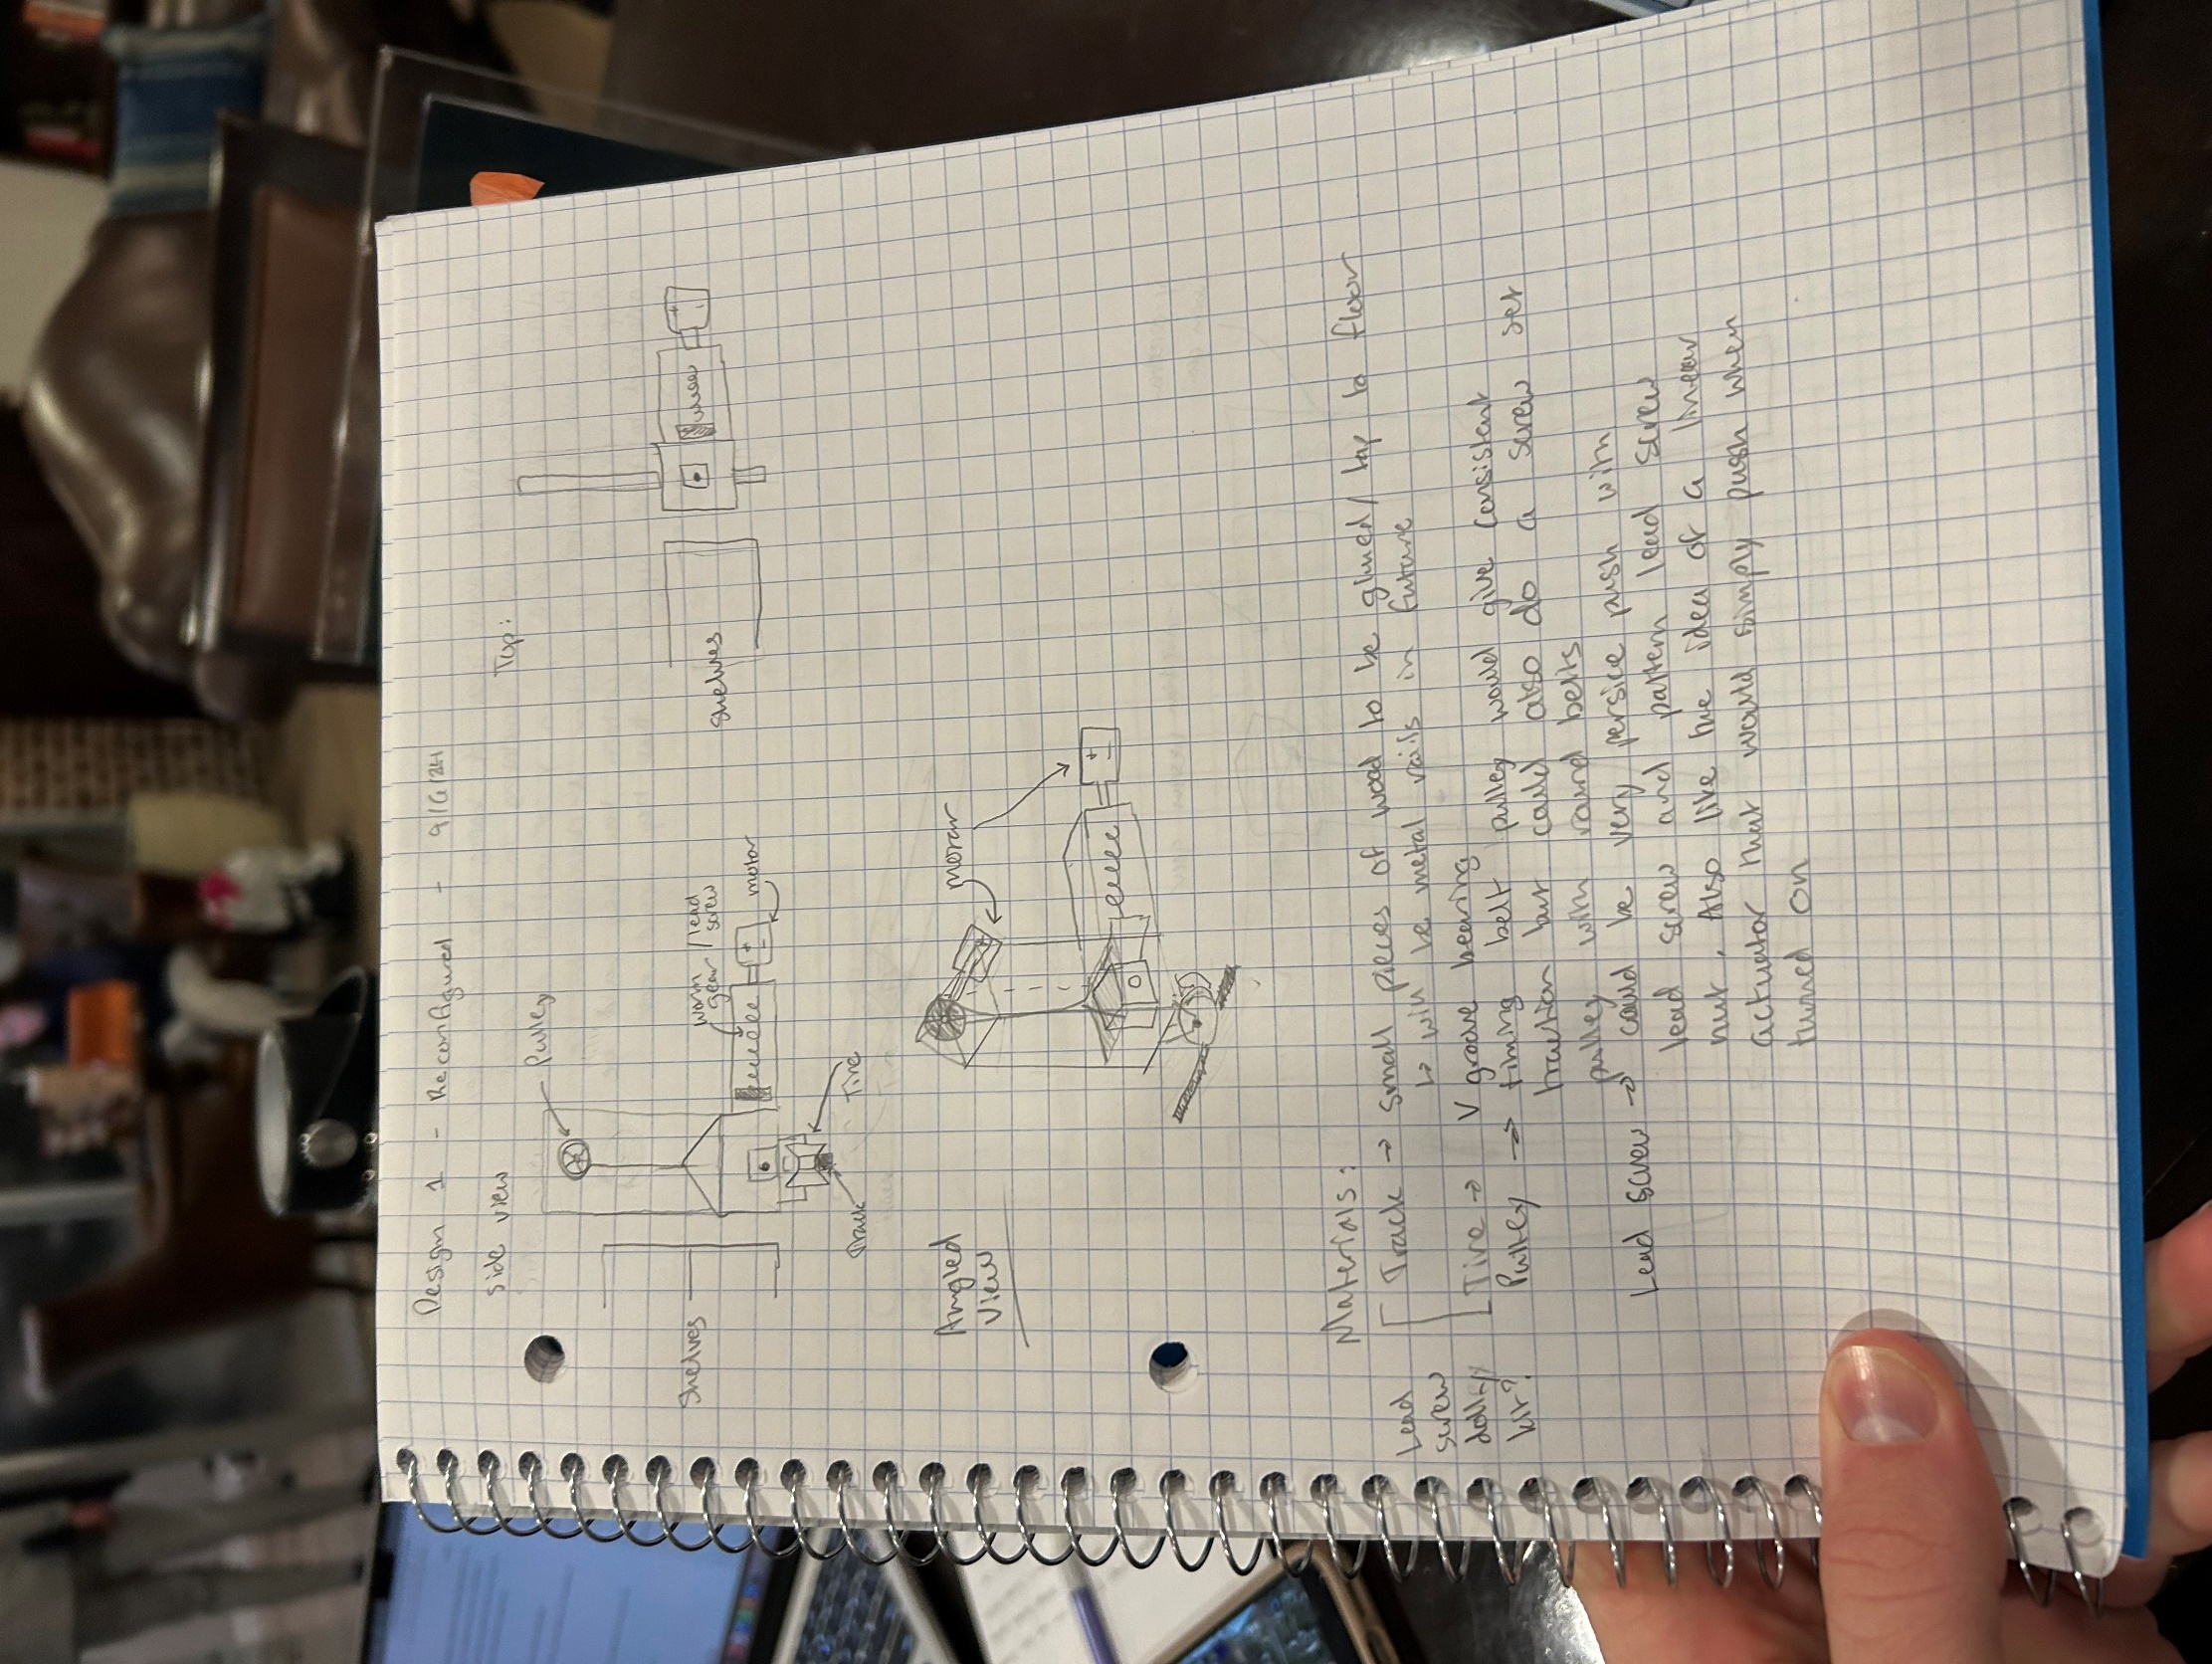 Design 1 - Reconfigured - 9/6/24
side view
Top:
Pulley
worm gear / lead screw
motor
Shelves
shelves
Tire
Track
Angled View
motor
Materials:
Lead screw dolly kit?
Track → small pieces of wood to be glued/ lay to floor
↳ will be metal rails in future
Tire → V groove bearing
Pulley → timing belt pulley would give consistent
traction but could also do a screw set
pulley with round belts
Lead screw → could be very persice push with
lead screw and pattern lead screw
nut. Also like the idea of a linear
actuator that would simply push when
turned on